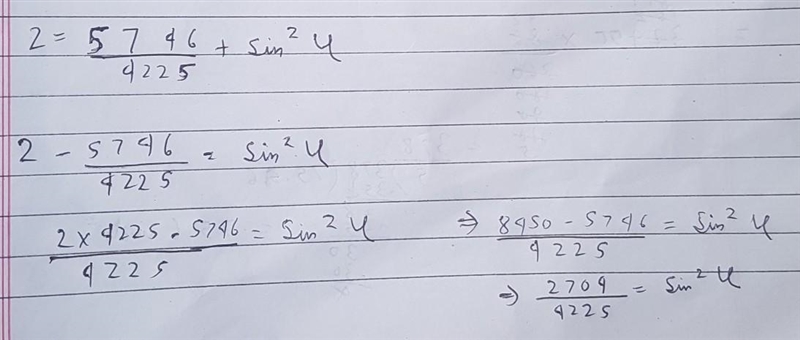 2 = 5746/4225 + Sin² U
2 - 5746/4225 = Sin² U
(2 × 4225 - 5746)/4225 = Sin² U ⇒ (8450 - 5746)/4225 = Sin² U
⇒ 2704/4225 = Sin² U